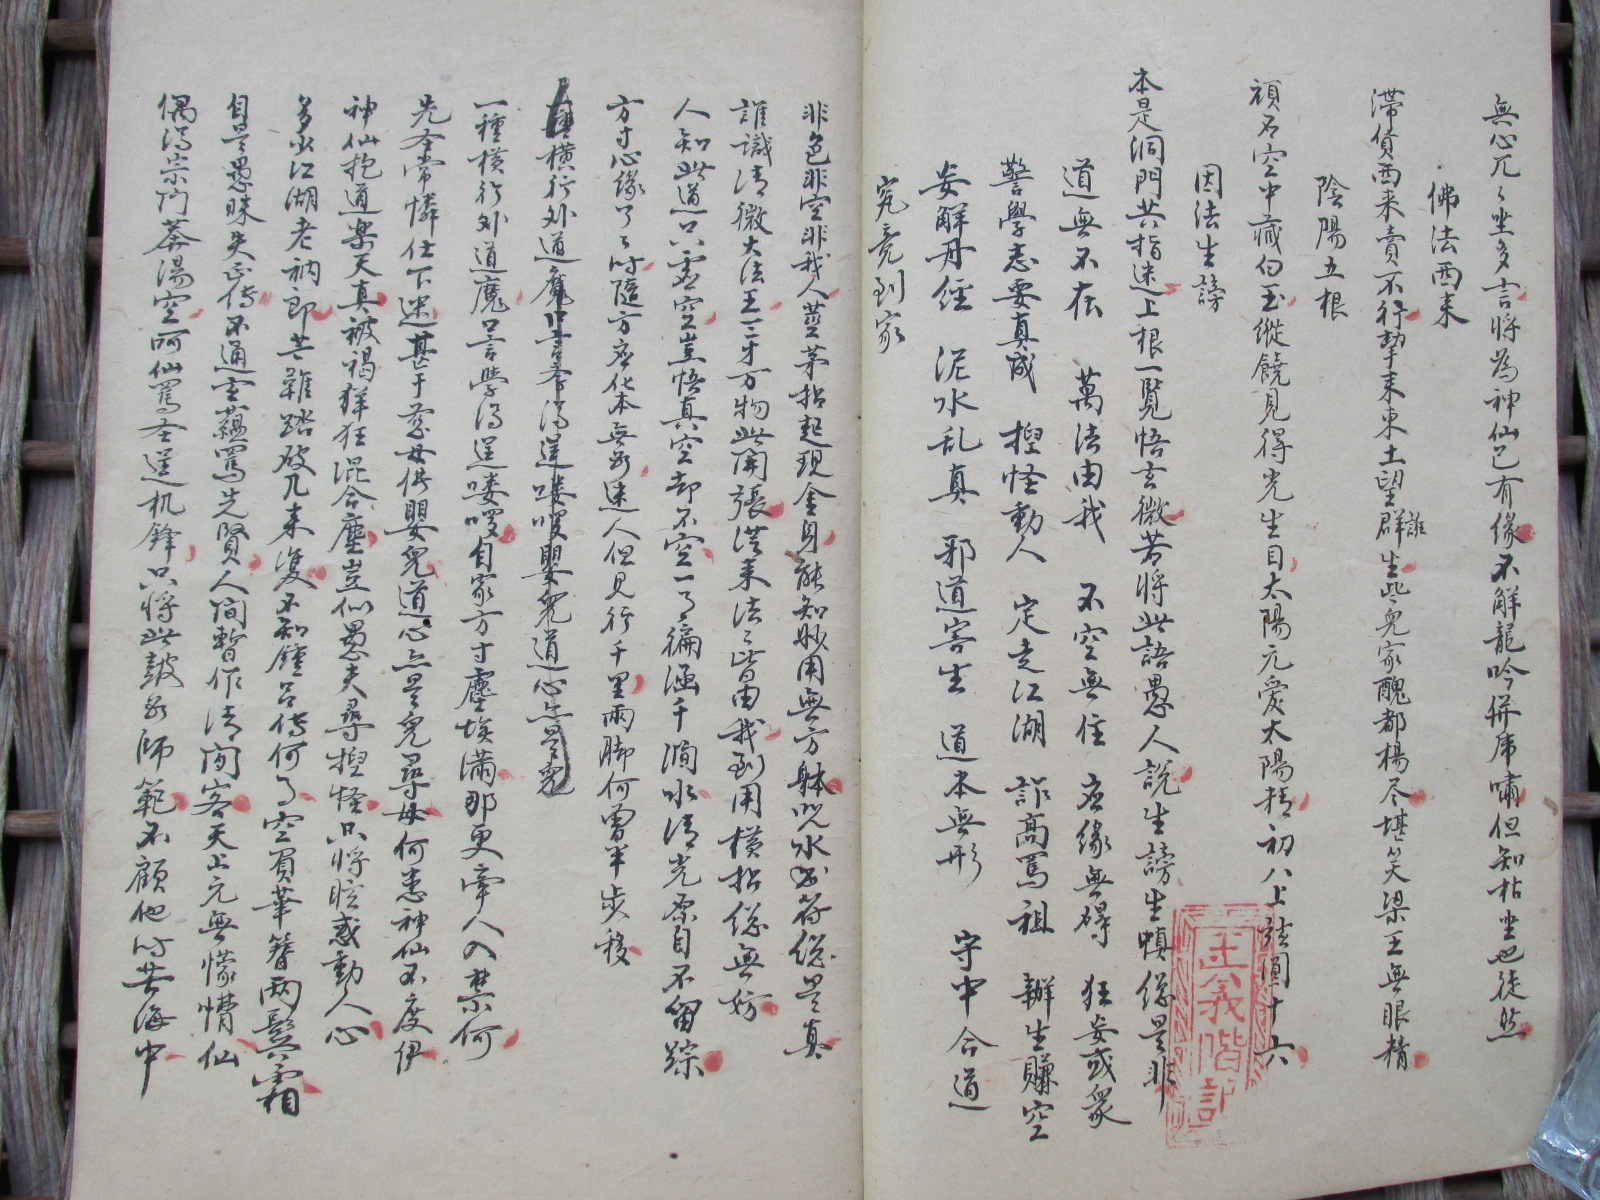 無心兀々坐多言將為神仙已有緣不解龍吟併虎嘯但知枯坐也徒然
佛法西来
滯貨西来賣不行挚来東土望誰群生些兒家醜都楊尽堪笑梁王無眼精
陰陽五根
頑石空中藏白玉縱饒見得光生目太陽元爱太陽精初八上弦圓十六
因法生謗
本是洞門共指迷上根一覧悟玄微若將此語愚人說生謗生嗔総是非
道無不在 萬法由我 不空無住 应緣無碍 狂妄或衆
警學志要真成 揑怪動人 定走江湖 詐高罵祖 辦生賺空
妄解丹經 泥水乱真 邪道害生 道本無形 守中合道
究竟到家
非色非空非我人莖茅拈起現金身能知妙用無方躰咒水書符総是真
誰識清微大法王三才万物此開張洪来法々皆由我到用橫拈総無妨
人知此道只虚空豈悟真空却不空一了徧涵千澗水清光原自不留踪
方寸心緣了々时隨方应化本無移迷人但見行千里兩脚何曽半步移
種橫行外道魔口言學得逞嘍啰嬰兒道心也是兒
一種橫行外道魔只言學得逞嘍啰自家方寸塵埃滿那更牽人入禁何
先圣常憐仕下迷甚于慈母供嬰兒道心亦是兒尋母何恙神仙不度伊
神仙抱道楽天真被褐猖狂混合塵豈似愚夫尋揑怪只將眩惑動人心
多少江湖老衲即芒鞋踏破几来双不知鍾吕傳何了空負華簪兩鬂霜
自是愚昧失正傳不通玄蘊罵先賢人间暫作清閑客天上元無懞懵仙
偶得宗門莽湯空呵仙罵圣逞机鋒只將此鼓为師範不顧他时苦海中
正義階記